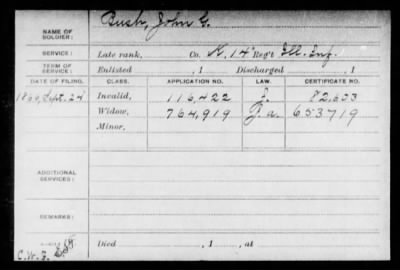 NAME OF SOLDIER: Bush, John G.
SERVICE: Late rank, Co. K, 14" Reg't Ill. Inf.
TERM OF SERVICE: Enlisted , 1 Discharged , 1
DATE OF FILING. CLASS. APPLICATION NO. LAW. CERTIFICATE NO.
1866, Sept. 24 Invalid, 116,422 82,653
Widow, 764,919 G. a. 653719
Minor,
ADDITIONAL SERVICES:
REMARKS:
C. W. G.
Died , 1 , at